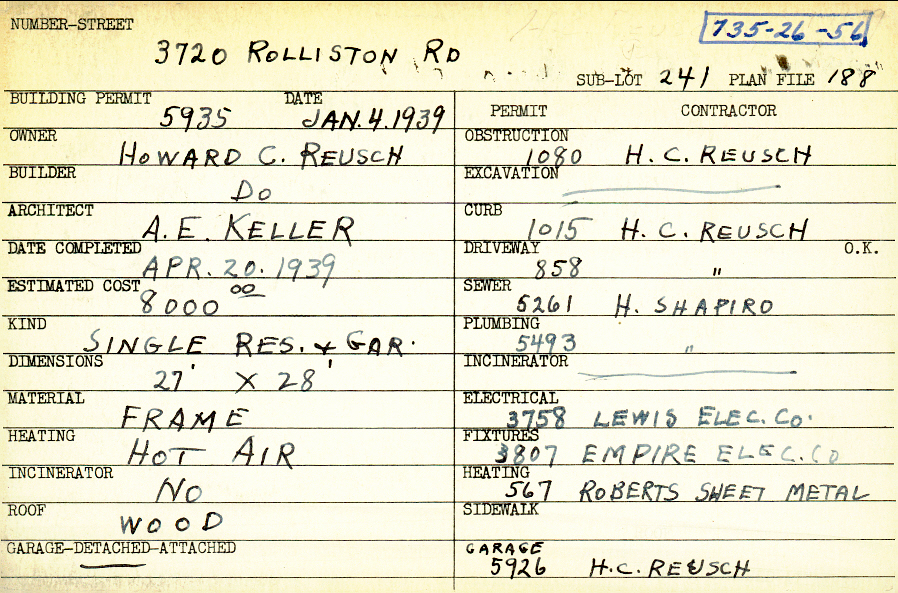 NUMBER-STREET
735-26-56
3720 ROLLISTON RD
SUB-LOT 241 PLAN FILE 188
BUILDING PERMIT DATE
5935 JAN. 4. 1939
OWNER
HOWARD C. REUSCH
BUILDER
DO
ARCHITECT
A. E. KELLER
DATE COMPLETED
APR. 20. 1939
ESTIMATED COST
8000 00
KIND
SINGLE RES. + GAR.
DIMENSIONS
27' X 28'
MATERIAL
FRAME
HEATING
HOT AIR
INCINERATOR
NO
ROOF
WOOD
GARAGE-DETACHED-ATTACHED
PERMIT CONTRACTOR
OBSTRUCTION
1080 H. C. REUSCH
EXCAVATION
CURB
1015 H. C. REUSCH
DRIVEWAY O.K.
858 "
SEWER
5261 H. SHAPIRO
PLUMBING
5493 "
INCINERATOR
ELECTRICAL
3758 LEWIS ELEC. CO.
FIXTURES
3807 EMPIRE ELEC. CO
HEATING
567 ROBERTS SHEET METAL
SIDEWALK
GARAGE
5926 H.C. REUSCH